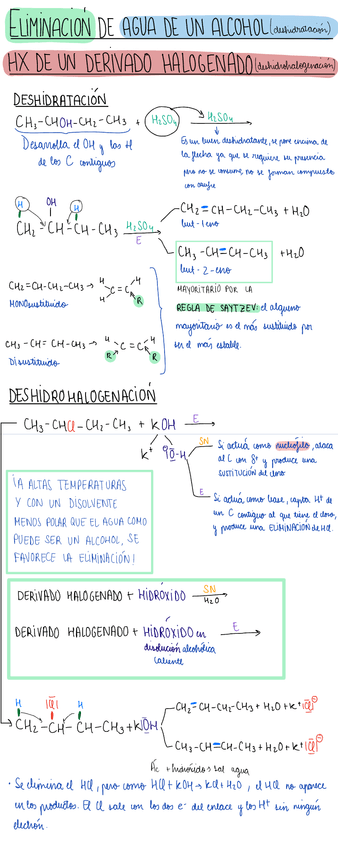 ELIMINACIÓN DE AGUA DE UN ALCOHOL (deshidratación)
HX DE UN DERIVADO HALOGENADO (deshidrohalogenación)
DESHIDRATACIÓN
CH₃-CHOH-CH₂-CH₃ + H₂SO₄ H₂SO₄→
Desarrolla el OH y los H
de los C contiguos
Es un buen deshidratante, se pone encima de
la flecha ya que se requiere su presencia
pero no se consume, no se forman compuestos
con azufre
H OH H
CH₂-CH-CH-CH₃ H₂SO₄→ E
CH₂=CH-CH₂-CH₃ + H₂O
but-1-eno
CH₃-CH=CH-CH₃ + H₂O
but-2-eno
MAYORITARIO POR LA
REGLA DE SAYTZEV: el alqueno
mayoritario es el más sustituido por
ser el más estable.
CH₂=CH-CH₂-CH₃ → H H C=C H R
MONOsustituido
CH₃-CH=CH-CH₃ → H R C=C H R
Disustituido
DESHIDROHALOGENACIÓN
CH₃-CHCl-CH₂-CH₃ + KOH E→
K⁺ ⁻O-H
SN
Si actúa como nucleófilo, ataca
al C con δ⁺ y produce una
SUSTITUCIÓN del cloro
E
Si actúa como base, capta H⁺ de
un C contiguo al que tiene el cloro,
y produce una ELIMINACIÓN de HCl.
¡A ALTAS TEMPERATURAS
Y CON UN DISOLVENTE
MENOS POLAR QUE EL AGUA COMO
PUEDE SER UN ALCOHOL, SE
FAVORECE LA ELIMINACIÓN!
DERIVADO HALOGENADO + HIDRÓXIDO SN→ H₂O
DERIVADO HALOGENADO + HIDRÓXIDO en E→
disolución alcohólica
caliente
H |Cl| H
CH₂-CH-CH-CH₃ + KOH
CH₂=CH-CH₂-CH₃ + H₂O + K⁺ |Cl|⁻
CH₃-CH=CH-CH₃ + H₂O + K⁺ |Cl|⁻
Ác + hidróxido → sal agua
· Se elimina el HCl, pero como HCl + KOH → KCl + H₂O, el HCl no aparece
en los productos. El Cl sale con los dos e⁻ del enlace y los H⁺ sin ningún
electrón.